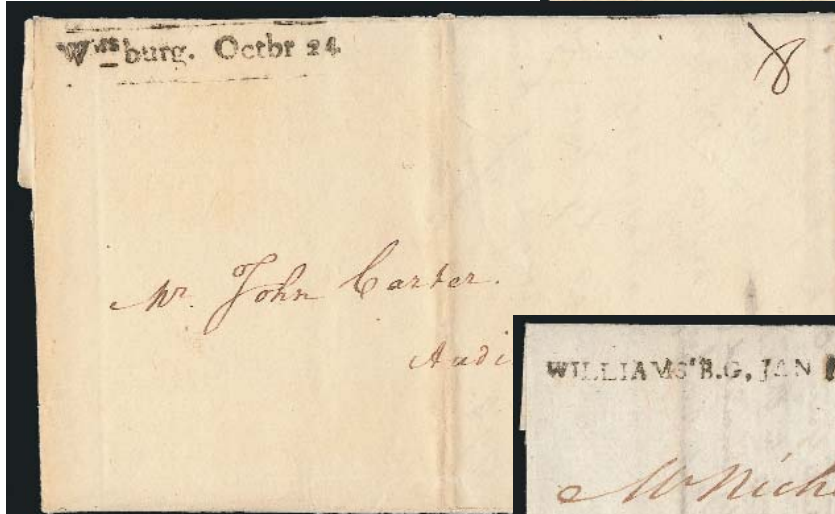 Wms'burg. Octbr 24
8
Mr. John Carter.
Audi
WILLIAMS'B.G, JAN
Mr Nich